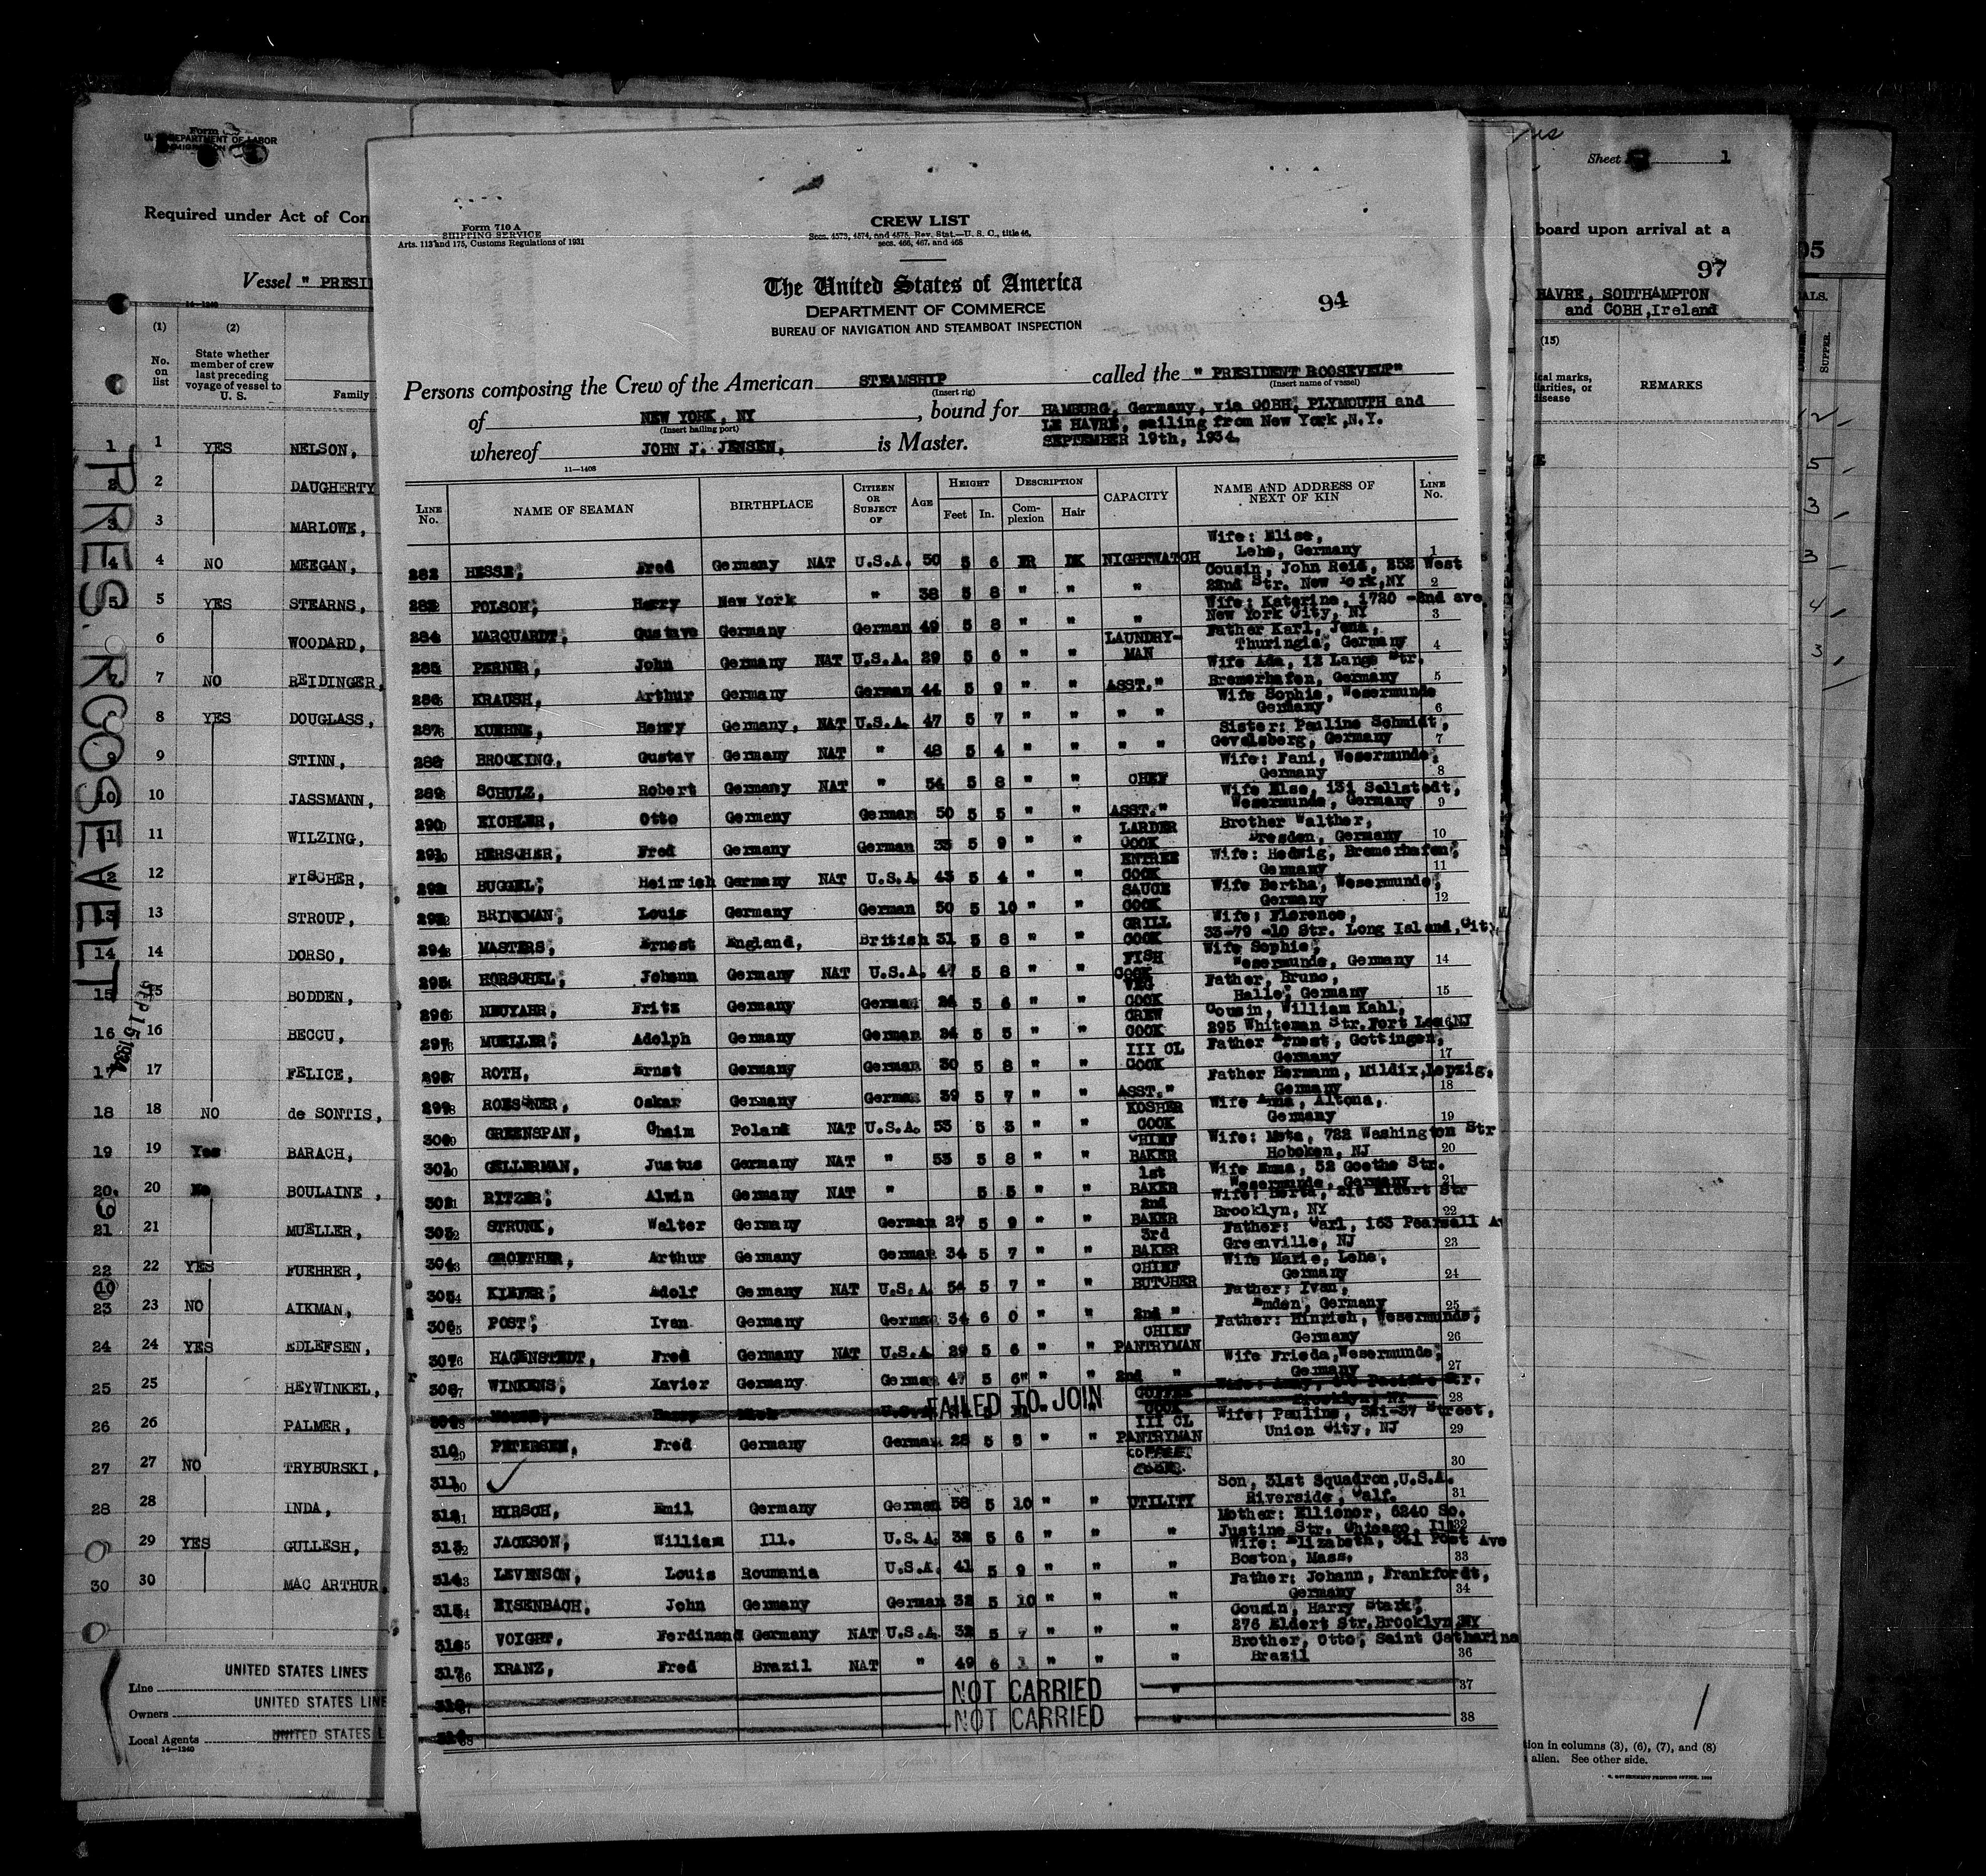 Form
U. S. DEPARTMENT OF LABOR
Required under Act of Con
Vessel " PRESI
14—1240
(1)
(2)
No. on list
State whether member of crew last preceding voyage of vessel to U. S.
Family
PRES. ROOSEVELT
SEP 15 1934
1 1 YES NELSON,
2 2 DAUGHERTY
3 3 MARLOWE,
4 4 NO MEEGAN,
5 5 YES STEARNS,
6 WOODARD,
7 7 NO REIDINGER,
8 8 YES DOUGLASS,
9 9 STINN,
10 10 JASSMANN,
11 11 WILZING,
12 12 FISCHER,
13 13 STROUP,
14 14 DORSO,
15 15 BODDEN,
16 16 BECCU,
17 17 FELICE,
18 18 NO de SONTIS,
19 19 Yes BARACH,
20 20 No BOULAINE,
21 21 MUELLER,
22 22 YES FUEHRER,
10
23 23 NO AIKMAN,
24 24 YES EDLEFSEN,
25 25 HEYWINKEL,
26 26 PALMER,
27 27 NO TRYBURSKI,
28 28 INDA,
29 YES GULLESH,
30 30 MAC ARTHUR
Line UNITED STATES LINES
Owners UNITED STATES LINE
Local Agents UNITED STATES L
14—1240
Form 710 A
SHIPPING SERVICE
Arts. 113 and 175, Customs Regulations of 1931
CREW LIST
Secs. 4573, 4574, and 4575, Rev. Stat.—U. S. C., title 46,
secs. 466, 467, and 468
The United States of America
DEPARTMENT OF COMMERCE
BUREAU OF NAVIGATION AND STEAMBOAT INSPECTION
94
Persons composing the Crew of the American STEAMSHIP called the " PRESIDENT ROOSEVELT"
(Insert rig) (Insert name of vessel)
of NEW YORK, NY, bound for HAMBURG, Germany, via COBH, PLYMOUTH and
(Insert hailing port) LE HAVRE, sailing from New York, N.Y.
whereof JOHN J. JENSEN, is Master. SEPTEMBER 19th, 1934.
11—1408
LINE No. NAME OF SEAMAN BIRTHPLACE CITIZEN OR SUBJECT OF AGE HEIGHT Feet In. DESCRIPTION Complexion Hair CAPACITY NAME AND ADDRESS OF NEXT OF KIN LINE No.
282 HESSE, Fred Germany NAT U.S.A. 50 5 6 DK NIGHTWATCH Wife: Elise, Lehe, Germany 1
POLSON, Harry New York " 38 5 8 " " " Cousin, John Reid, 252 West 22nd Str. New York, NY 2
284 MARQUARDT, Gustave Germany German 49 5 8 " " " Wife: Katerine, 1720 -2nd ave. New York City, NY 3
285 PERNER, John Germany NAT U.S.A. 29 5 6 " " LAUNDRY-MAN Father Karl, Jena, Thuringia, Germany 4
286 KRAUSH, Arthur Germany German 44 5 9 " " ASST. " Wife Ada, 12 Lange Str. Bremerhafen, Germany 5
287 KUEHNE, Henry Germany, NAT U.S.A. 47 5 7 " " " " Wife Sophie, Wesermunde Germany 6
288 BROCKING, Gustav Germany NAT " 48 5 4 " " " " Sister: Pauline Schmidt, Gevelsberg, Germany 7
289 SCHULZ, Robert Germany NAT " 54 5 8 " " CHEF Wife: Fani, Wesermunde, Germany 8
290 EICHLER, Otto Germany German 50 5 5 " " ASST. " Wife Else, 131 Sellstedt, Wesermunde, Germany 9
291 HERSCHER, Fred Germany German 5 9 " " LARDER COOK Brother Walther, Dresden, Germany 10
292 BUGGEL, Heinrich Germany NAT U.S.A. 43 5 4 " " ENTREE COOK Wife: Hedwig, Bremerhafen, Germany 11
293 BRINKMAN, Louis Germany German 50 5 10 " " SAUCE COOK Wife Bertha, Wesermunde, Germany 12
294 MASTERS, Ernest England, British 31 5 8 " " GRILL COOK Wife: Florence, 33-79 -10 Str. Long Island, City
295 HORSCHEL, Johann Germany NAT U.S.A. 47 5 8 " " FISH COOK Wife Sophie, Wesermunde, Germany 14
296 NEUYAHR, Fritz Germany German 5 6 " " VEG COOK Father, Bruno, Halle, Germany 15
297 MUELLER, Adolph Germany German 5 5 " " CREW COOK Cousin, William Kahl, 295 Whiteman Str. Fort Lee, NJ
298 ROTH, Ernst Germany German 30 5 8 " " III CL COOK Father Ernest, Gottingen, Germany 17
299 ROESSNER, Oskar Germany German 39 5 7 " " ASST. " Father Hermann, Mildix, Lepzig, Germany 18
300 GREENSPAN, Chaim Poland NAT U.S.A. 53 5 3 " " KOSHER COOK Wife Anna, Altona, Germany 19
301 GELLERMAN, Justus Germany NAT " 53 5 8 " " CHIEF BAKER Wife: Meta, 722 Washington Str Hoboken, NJ 20
302 RITZER, Alwin Germany NAT " 5 5 " " 1st BAKER Wife Emma, 52 Goethe Str. Wesermunde, Germany 21
303 STRUNK, Walter Germany German 27 5 9 " " 2nd BAKER Wife: Berta, 216 Eldert Str Brooklyn, NY 22
304 GROETHER, Arthur Germany German 34 5 7 " " 3rd BAKER Father: Carl, 163 Pearsall A Greenville, NJ 23
305 KIEFER, Adolf Germany NAT U.S.A. 54 5 7 " " CHIEF BUTCHER Wife Marie, Lehe, Germany 24
306 POST, Ivan Germany German 34 6 0 " " 2nd " Father: Ivan, Emden, Germany 25
307 HAGENSTEDT, Fred Germany NAT U.S.A. 29 5 6 " " CHIEF PANTRYMAN Father: Hinrich, Wesermunde, Germany 26
308 WINKENS, Xavier Germany German 47 5 6 " " 2nd " Wife Frieda, Wesermunde, Germany 27
FAILED TO JOIN COFFEE COOK Brooklyn, NY 28
310 PETERSEN, Fred Germany German 28 5 5 " " III CL PANTRYMAN Wife: Pauline, 321-37 Street, Union City, NJ 29
311 ✓ 30
312 HIRSCH, Emil Germany German 5 10 " " UTILITY Son, 31st Squadron, U.S.A. Riverside, Calf. 31
313 JACKSON, William Ill. U.S.A. 32 5 6 " " " Mother: Ellienor, 6240 So. Justine Str. Chicago, Ill. 32
314 LEVENSON, Louis Roumania U.S.A. 41 5 9 " " " Wife: Elizabeth, 341 Post Ave Boston, Mass. 33
315 EISENBACH, John Germany German 32 5 10 " " " Father: Johann, Frankfordt, Germany 34
316 VOIGHT, Ferdinand Germany NAT U.S.A. 32 5 7 " " " Cousin, Harry Stark, 276 Eldert Str, Brooklyn, NY
317 KRANZ, Fred Brazil NAT " 49 6 " " " Brother, Otto, Saint Catharina Brazil 36
NOT CARRIED " 37
NOT CARRIED " 38
Sheet 1
board upon arrival at a
97
HAVRE, SOUTHAMPTON
and COBH, Ireland
(15)
ical marks,
liarities, or
disease
REMARKS
tion in columns (3), (6), (7), and (8)
alien. See other side.
05
SUPPER.